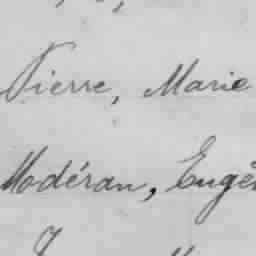 Pierre, Marie
Modéran, Eugè